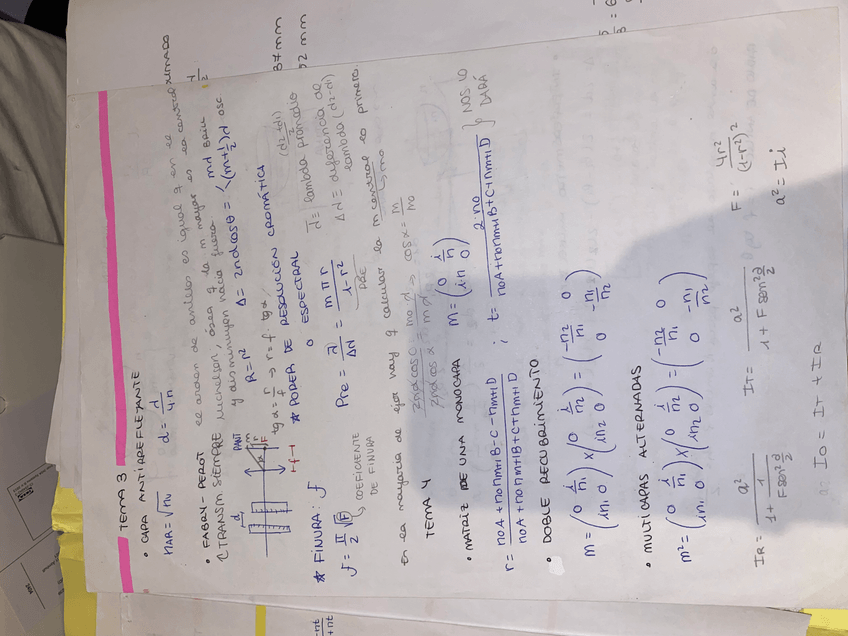 TEMA 3
• CAPA ANTIRREFLEJANTE
nAR = √nv   d = λ/4n
• FABRY-PEROT
el orden de anillos es igual q en el
TRANSM SIEMPRE Michelson, osea q la m mayor es la central
y disminuyen hacia fuera.
R = r²   Δ = 2nd cosθ = < mλ BRILL
(m+1/2)λ osc
d   PANT
tgα = r/f ⇒ r = f · tgα
* PODER DE RESOLUCIÓN CROMÁTICA
O ESPECTRAL
* FINURA: f
f = π/2 √F
↳ COEFICIENTE
DE FINURA
Pre = λ̄/Δλ = mπr/1-r²
λ̄ = lambda promedio (λ2+λ1)/2
Δλ = diferencia de
lambda (λ2-λ1)
En la mayoría de ejer hay q calcular la m central lo primero.
↳ mo
cosα = m/mo
TEMA 4
• MATRIZ DE UNA MONOCAPA   m = (0 i/n
in 0)
r = noA + no nm+1 B - C - nm+1 D / noA + no nm+1 B + C + nm+1 D ; t = 2no / noA + no nm+1 B + C + nm+1 D } NOS LO
DARÁ
• DOBLE RECUBRIMIENTO
m = (0 i/n1
in1 0) x (0 i/n2
in2 0) = (-n2/n1 0
0 -n1/n2)
• MULTICAPAS ALTERNADAS
m² = (0 i/n1
in1 0) x (0 i/n2
in2 0) = (-n2/n1 0
0 -n1/n2)
IR = a² / 1 + 1/F sen² δ/2   IT = a² / 1 + F sen² δ/2   F = 4r²/(1-r²)²
IO = IT + IR   a² = Ii